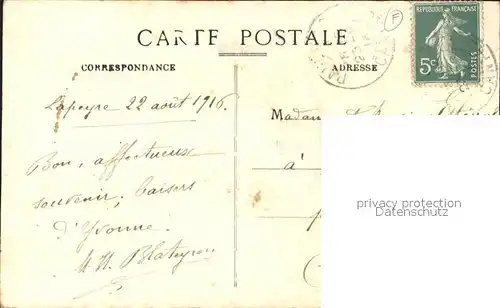 CARTE POSTALE
CORRESPONDANCE
ADRESSE
F
REPUBLIQUE FRANÇAISE
5c
POSTES
Lapeyre 22 août 1916.
Bon, affectueux
souvenir; baisers
d'Yvonne.
Madame
à
privacy protection
Datenschutz